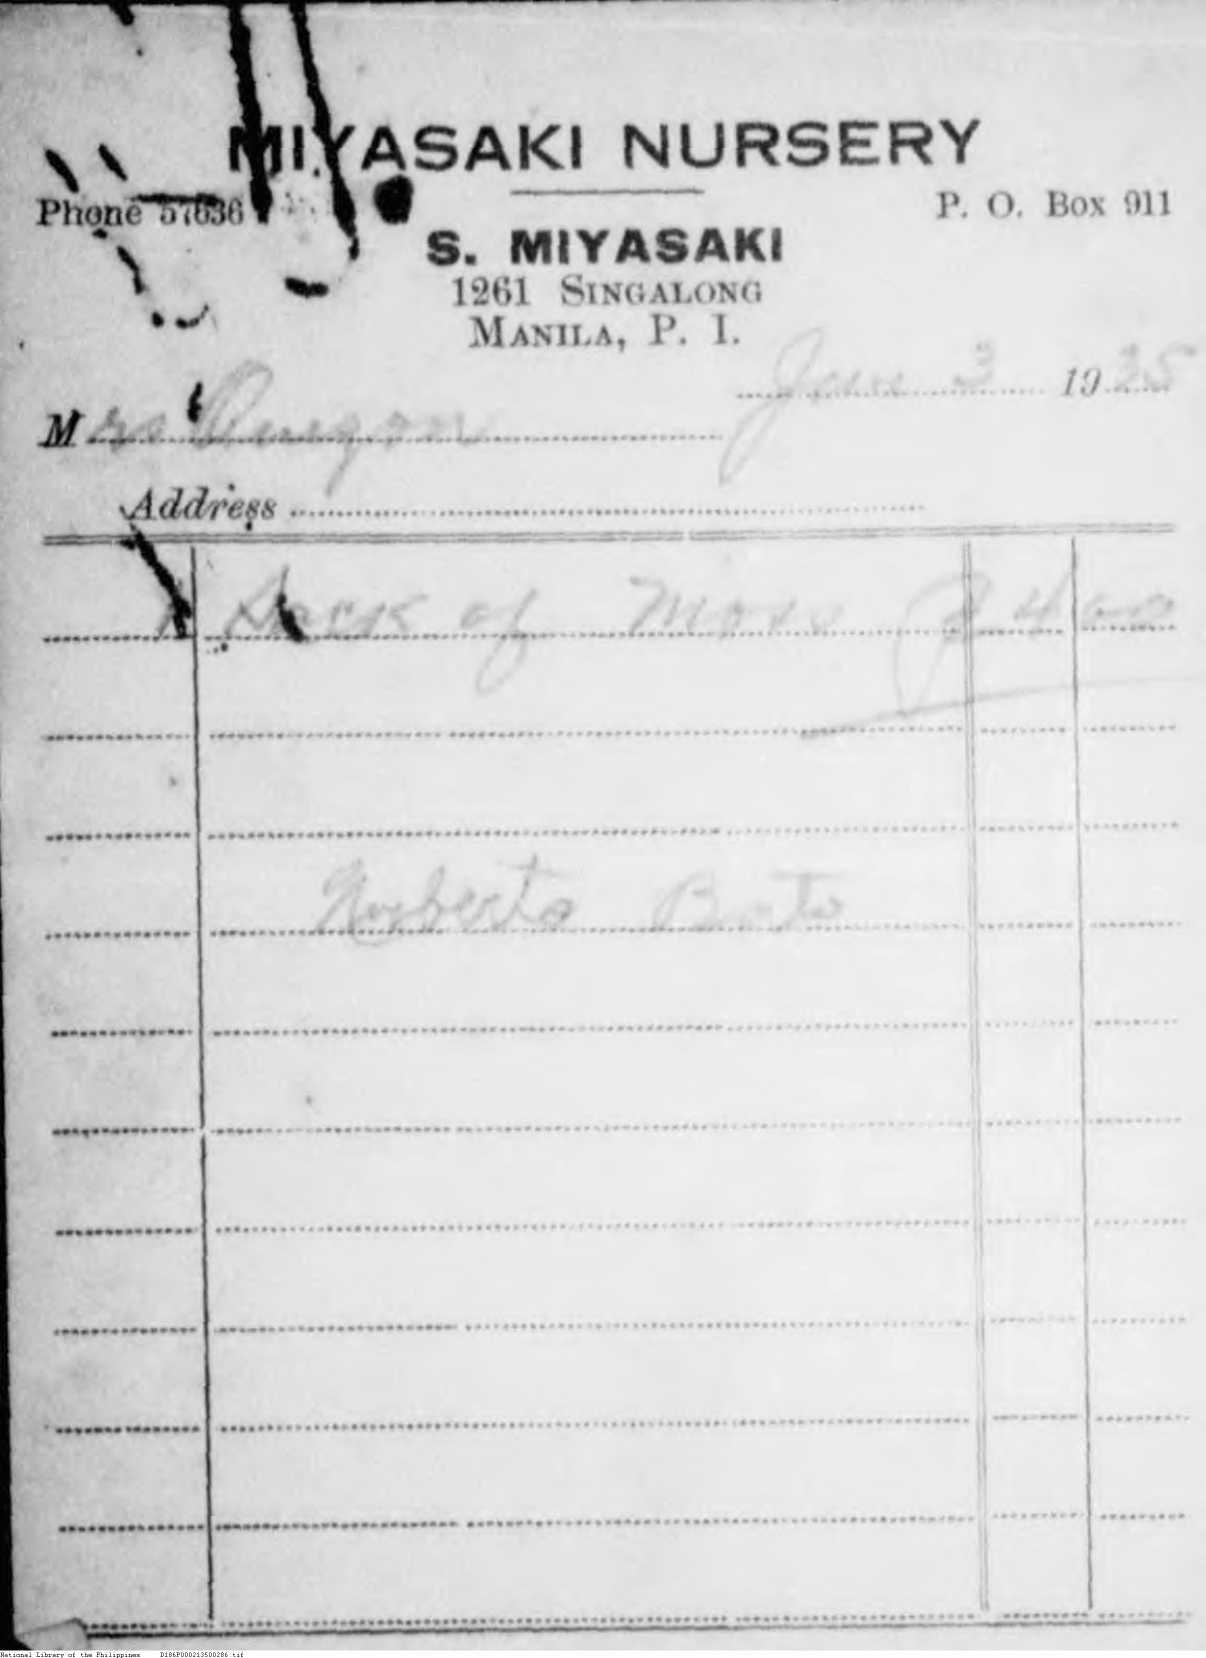 MIYASAKI NURSERY
Phone 57636
P. O. Box 911
S. MIYASAKI
1261 SINGALONG
MANILA, P. I.
Jan 3 1935
Mrs Quezon
Address
1 Sack of Moss ₱ 4 00
Norberto
National Library of the Philippines D186P000213500286.tif